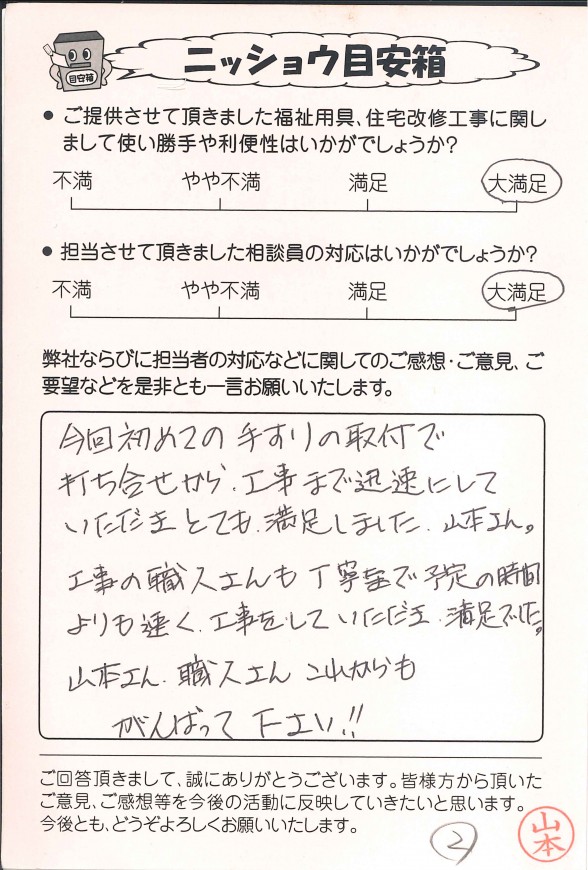 目安箱
ニッショウ目安箱
● ご提供させて頂きました福祉用具、住宅改修工事に関し
まして使い勝手や利便性はいかがでしょうか?
不満 やや不満 満足 大満足
● 担当させて頂きました相談員の対応はいかがでしょうか?
不満 やや不満 満足 大満足
弊社ならびに担当者の対応などに関してのご感想・ご意見、ご
要望などを是非とも一言お願いいたします。
今回初めての手すりの取付で
打ち合せから、工事まで迅速にして
いただきとても、満足しました、山本さん。
工事の職人さんも丁寧で予定の時間
よりも速く、工事をしていただき、満足でした。
山本さん、職人さん これからも
がんばって下さい!!
ご回答頂きまして、誠にありがとうございます。皆様方から頂いた
ご意見、ご感想等を今後の活動に反映していきたいと思います。
今後とも、どうぞよろしくお願いいたします。
2
山本